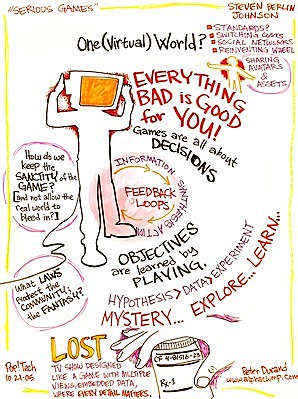 "SERIOUS GAMES"
STEVEN BERLIN
JOHNSON
One (Virtual) World?
STANDARDS?
SWITCHING COSTS
SOCIAL NETWORKS
REINVENTING WHEEL
SHARING
AVATARS
& ASSETS
EVERYTHING
BAD is GOOD
for YOU!
Games are all about
DECISIONS
How do we
keep the
SANCTITY of the
GAME?
[and not allow the
real world to
bleed in?]
INFORMATION
SYNTHESIS
ACTION
FEEDBACK
LOOPS
OBJECTIVES
are learned by
PLAYING.
What LAWS
protect the
COMMUNITY,
the FANTASY?
HYPOTHESIS > DATA > EXPERIMENT
MYSTERY... EXPLORE... LEARN...
LOST
TV SHOW DESIGNED
LIKE A GAME WITH MULTIPLE
VIEWS, EMBEDDED DATA,
WHERE EVERY DETAIL MATTERS.
Pop!Tech
10-21-05
Rx-1
Peter Durand
www.alphachimp.com